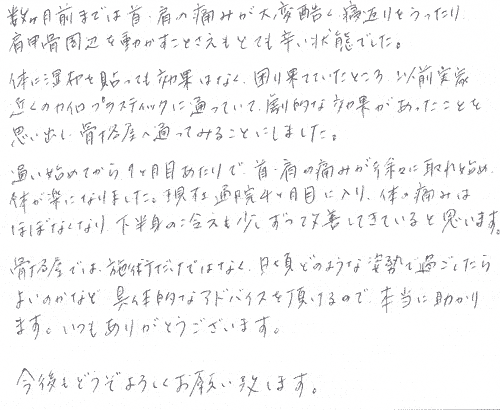 数ヶ月前までは首・肩の痛みが大変酷く、寝返りをうったり、
肩甲骨周辺を動かすことさえもとても辛い状態でした。
体に湿布を貼っても効果はなく、困り果てていたところ、以前実家
近くのカイロプラスティックに通っていて、劇的な効果があったことを
思い出し、骨格屋へ通ってみることにしました。
通い始めてから1ヶ月目あたりで、首・肩の痛みが徐々に取れ始め、
体が楽になりました。現在通院4ヶ月目に入り、体の痛みは
ほぼなくなり、下半身の冷えも少しずつ改善してきていると思います。
骨格屋では、施術だけではなく、日頃どのような姿勢で過ごしたら
よいのかなど、具体的なアドバイスを頂けるので、本当に助かり
ます。いつもありがとうございます。
今後もどうぞよろしくお願い致します。